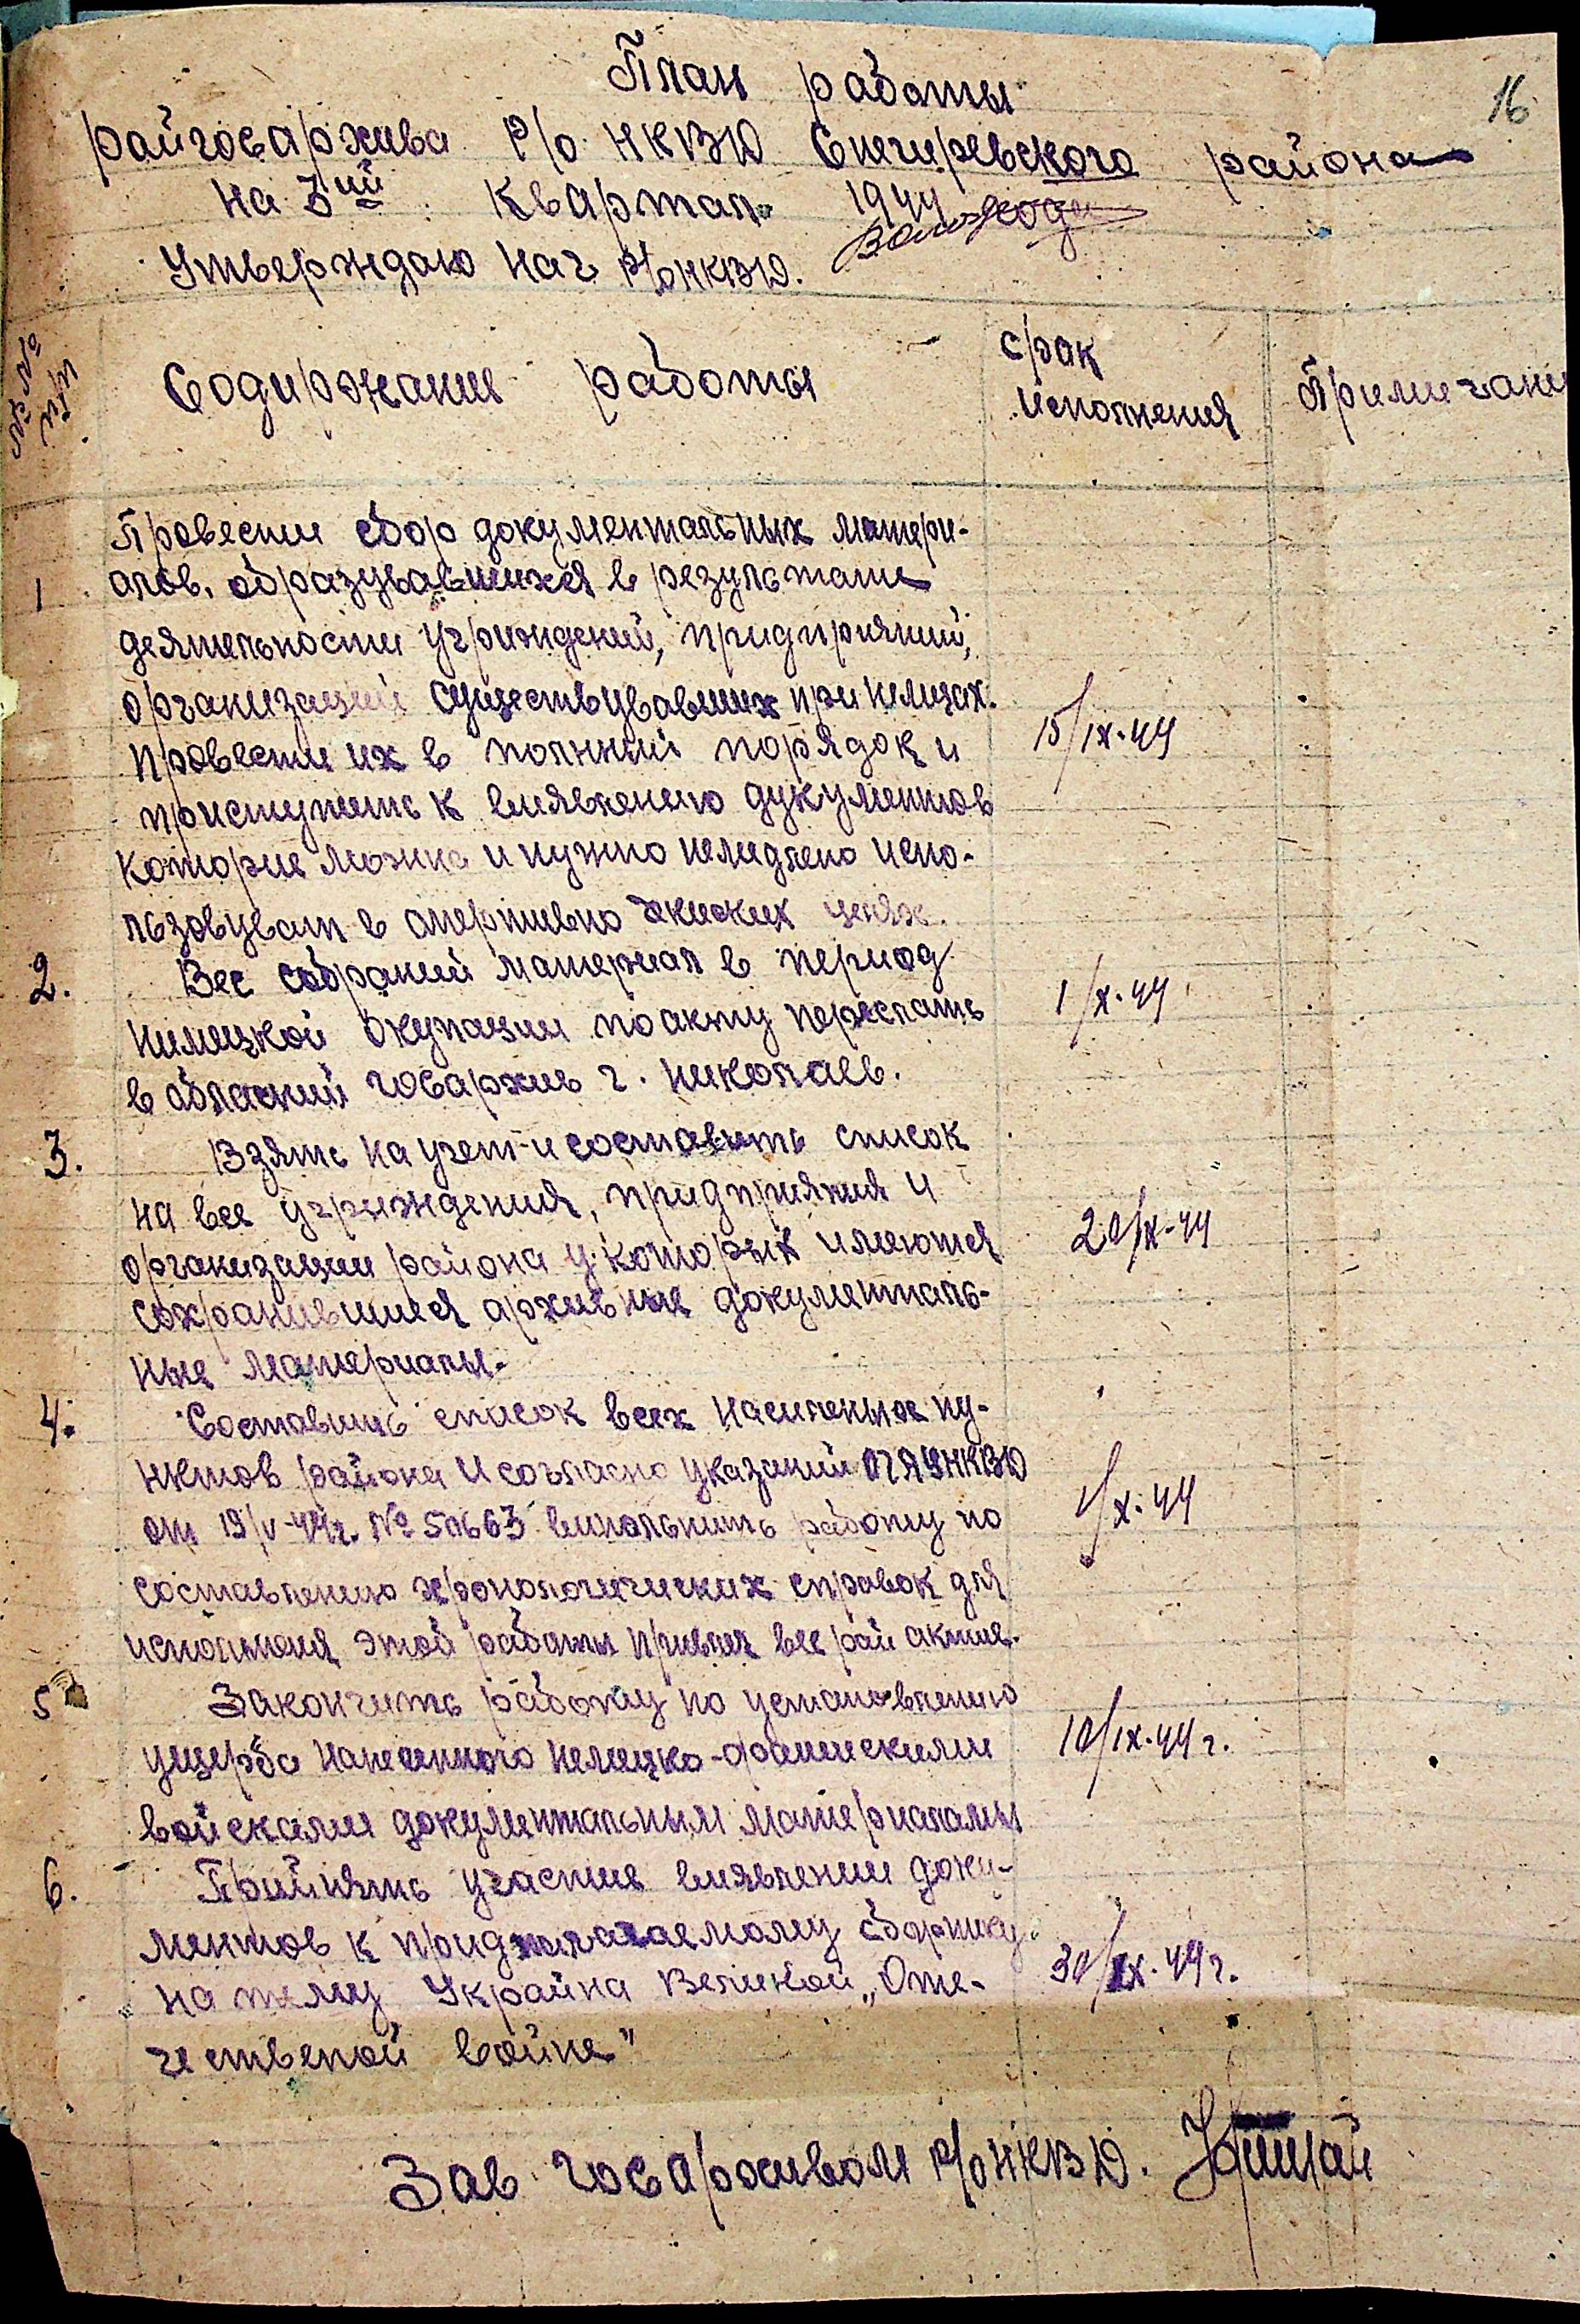 План работы
16
райгосархива Р/о НКВД Снегиревского района
на 3ий квартал 1944 года
Утверждаю Нач Р/о НКВД.
№№ п/п
Содиржание работы
срок исполнения
Примечани
1
Провести сбор документальных матери-
алов, образувавшихся в результате
деятельности учриждений, придприятий,
организаций существувавших при немцах.
Провести их в полнний порядок и
приступить к виявленею дукументов
которие можно и нужно немидлено испо-
льзовуват в опертивно чекиских целях.
15/IX-44
2.
Вес собраний материал в период
нимецкой окупации по акту переслать
в обласний госархив г. Николаев.
1/X-44
3.
Взять на учет и составить список
на все учриждения, придприятия и
организации района у которых имеются
сохранившиеся архивные документаль-
ные материалы.
20/IX-44
4.
Составить список всех насиленых пу-
нктов района И согласно указаний ОГА УНКВД
от 19/V-44г. № 50663 виполнить работу по
составлению хронологических справок для
исполненя этой работы привлеч все рай актив.
1/X-44
5
Закончить работу по установлению
ущерба нанесинного немецко-фашискими
войсками документальным материалам
10/IX-44 г.
6.
Прийнять участие виявлении доку-
ментов к придполагаемому сборнику
на тему Украйна Великой „Оте-
чественой войне"
30/IX-44 г.
Зав госархивом Р/о НКВД.